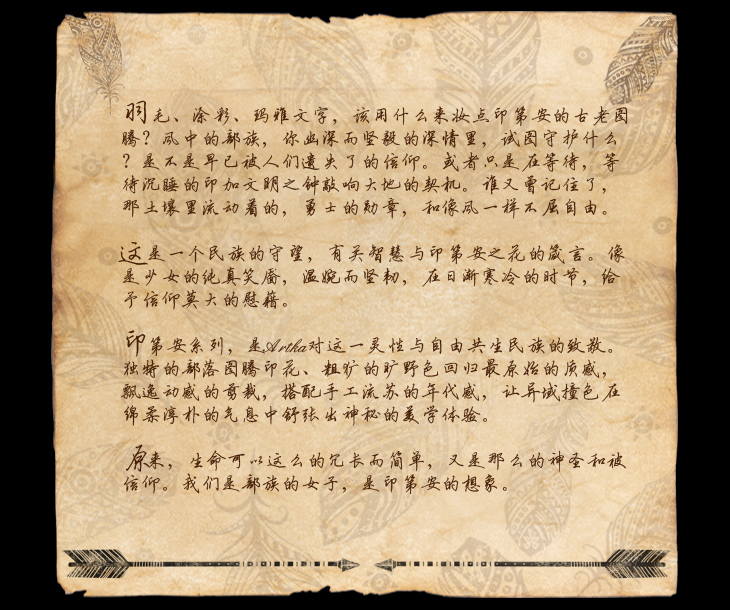 羽毛、涂彩、玛雅文字，该用什么来妆点印第安的古老图
腾？风中的部族，你幽深而坚毅的深情里，试图守护什么
？是不是早已被人们遗失了的信仰。或者只是在等待，等
待沉睡的印加文明之钟敲响大地的契机。谁又曾记住了，
那土壤里流动着的，勇士的勋章，和像风一样不屈自由。
这是一个民族的守望，有关智慧与印第安之花的箴言。像
是少女的纯真笑靥，温婉而坚韧，在日渐寒冷的时节，给
予信仰莫大的慰藉。
印第安系列，是Artka对这一灵性与自由共生民族的致敬。
独特的部落图腾印花、粗犷的旷野色回归最原始的质感，
飘逸动感的剪裁，搭配手工流苏的年代感，让异域撞色在
绵柔淳朴的气息中舒张出神秘的美学体验。
原来，生命可以这么的冗长而简单，又是那么的神圣和被
信仰。我们是部族的女子，是印第安的想象。